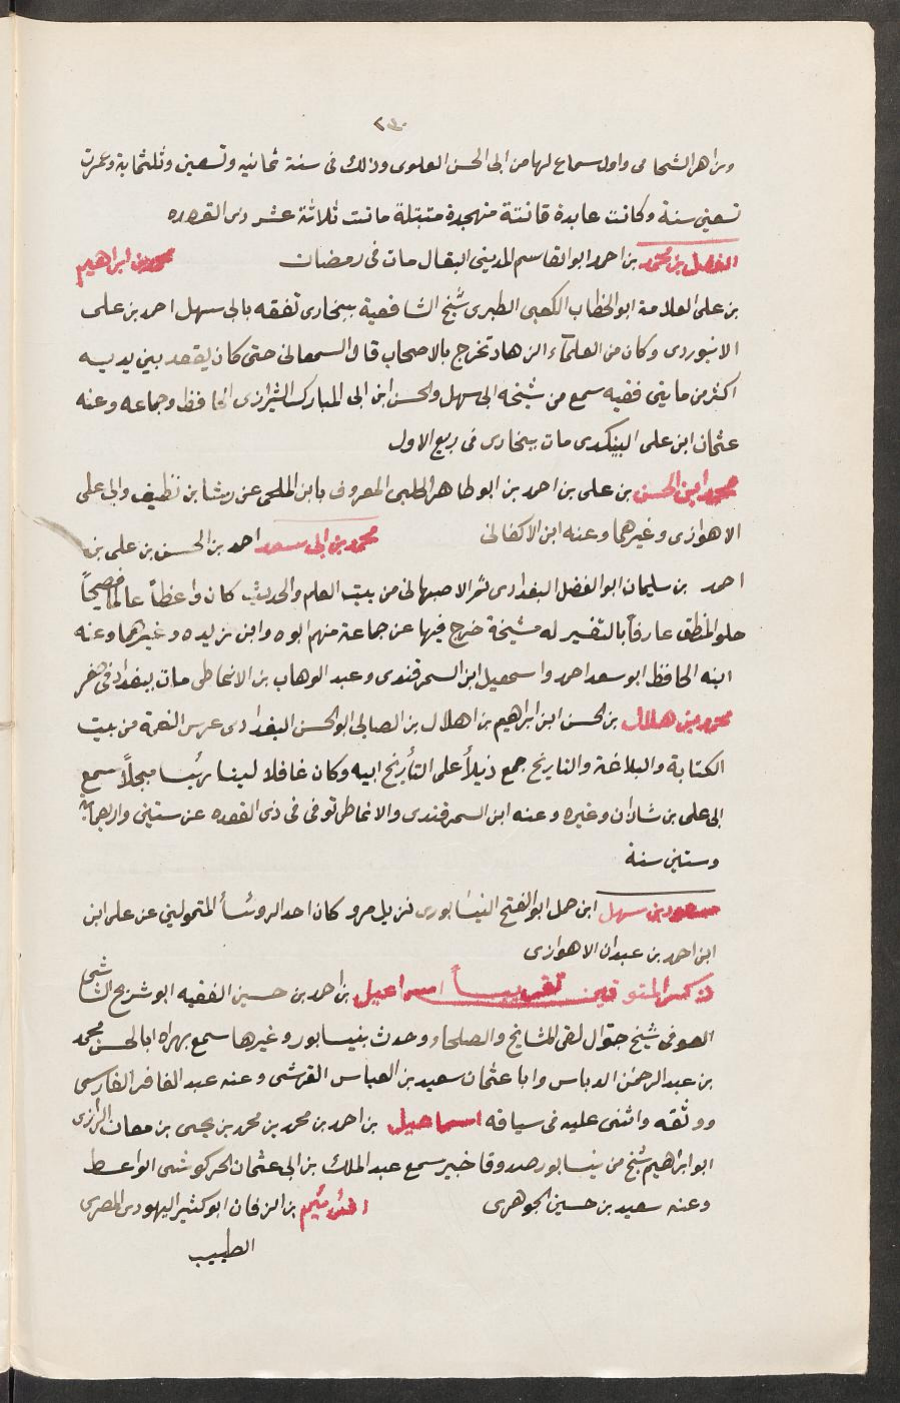 ٢٣٠
وزاهر الشحامى واول سماع لها من ابى الحسن العلوى وذلك فى سنة ثمانيه وتسعين وثلثماية وعمرت
تسعين سنة وكانت عابدة قانتة متهجدة متبتلة ماتت ثلاثة عشر ذى القعده
الفضل بن محمد بن احمد ابو القاسم المدينى البقال مات فى رمضان محمد بن ابراهيم
بن على العلامة ابو الخطاب الكعبى الطبرى شيخ الشافعية ببخارى تفقه بابى سهل احمد بن على
الابيوردى وكان من العلمآء الزهاد تخرج بالاصحاب قال السمعانى حتى كان يقعد بين يديه
اكثر من مايتى فقيه سمع من شيخه ابى سهل والحسن ابن ابى المبارك الشيرازى الحافظ وجماعه وعنه
عثمان ابن على البيكندى مات ببخارى فى ربيع الاول
محمد ابن الحسن بن على بن احمد بن ابو طاهر الحلبى المعروف بابن الملحى عن رشا بن نظيف وابى على
الاهوازى وغيرهما وعنه ابن الاكفانى محمد بن ابى سعد احمد بن الحسن بن على بن
احمد بن سليمان ابو الفضل البغدادى ثم الاصبهانى من بيت العلم والحديث كان واعظاً عالماً فصيحاً
حلو المنطق عارفاً بالتفسير له مشيخة خرج فيها عن جماعة منهم ابوه وابن زيده وغيرهما وعنه
ابنه الحافظ ابو سعد احمد واسمعيل ابن السمرقندى وعبد الوهاب بن الانماطى مات ببغداد فى صفر
محمد بن هلال بن الحسن ابن ابراهيم بن اهلال بن الصابى ابو الحسن البغدادى عرس النعمة من بيت
الكتابة والبلاغة والتاريخ جمع ذيلاً على التأريخ ابيه وكان غافلا لبيبا رئيسا مبجلاً سمع
ابى على بن شاذان وغيره وعنه ابن السمرقندى والانماطى توفى فى ذى القعده عن ستين واربعماية
وستين سنة
مسعود بن سهل ابن حمل ابو الفتح النيسابورى نزيل مرو كان احد الروسأ المتمولين عن على ابن
ابن احمد بن عبدان الاهوازى
ذكر المتوفين تقريباً اسماعيل بن احمد بن حسين الفقيه ابو شريح الشاشى
الصوفى شيخ جوال لقى المشايخ والصلحاء وحدث بنيسابور وغيرها سمع بهراه ابا الحسن محمد
بن عبد الرحمن الدباس وابا عثمان سعيد بن العباس القرشى وعنه عبد الغافر الفارسى
ووثقه واثنى عليه فى سياقه اسماعيل بن احمد بن محمد بن محمد بن يحيى بن معاذ الرازى
ابو ابراهيم شيخ من نيسابور صدوقا خير سمع عبد الملك بن ابى عثمان الخركوشى الواعظ
وعنه سعيد بن حسين الجوهرى افرئيم بن الزفان ابو كثير اليهودى المصرى
الطبيب